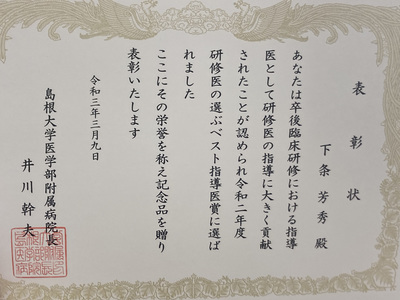 表彰状
下条 芳秀 殿
あなたは卒後臨床研修における指導
医として研修医の指導に大きく貢献
されたことが認められ令和二年度
研修医の選ぶベスト指導医賞に選ば
れました
ここにその栄誉を称え記念品を贈り
表彰いたします
令和三年三月九日
島根大学医学部附属病院長
井川 幹夫